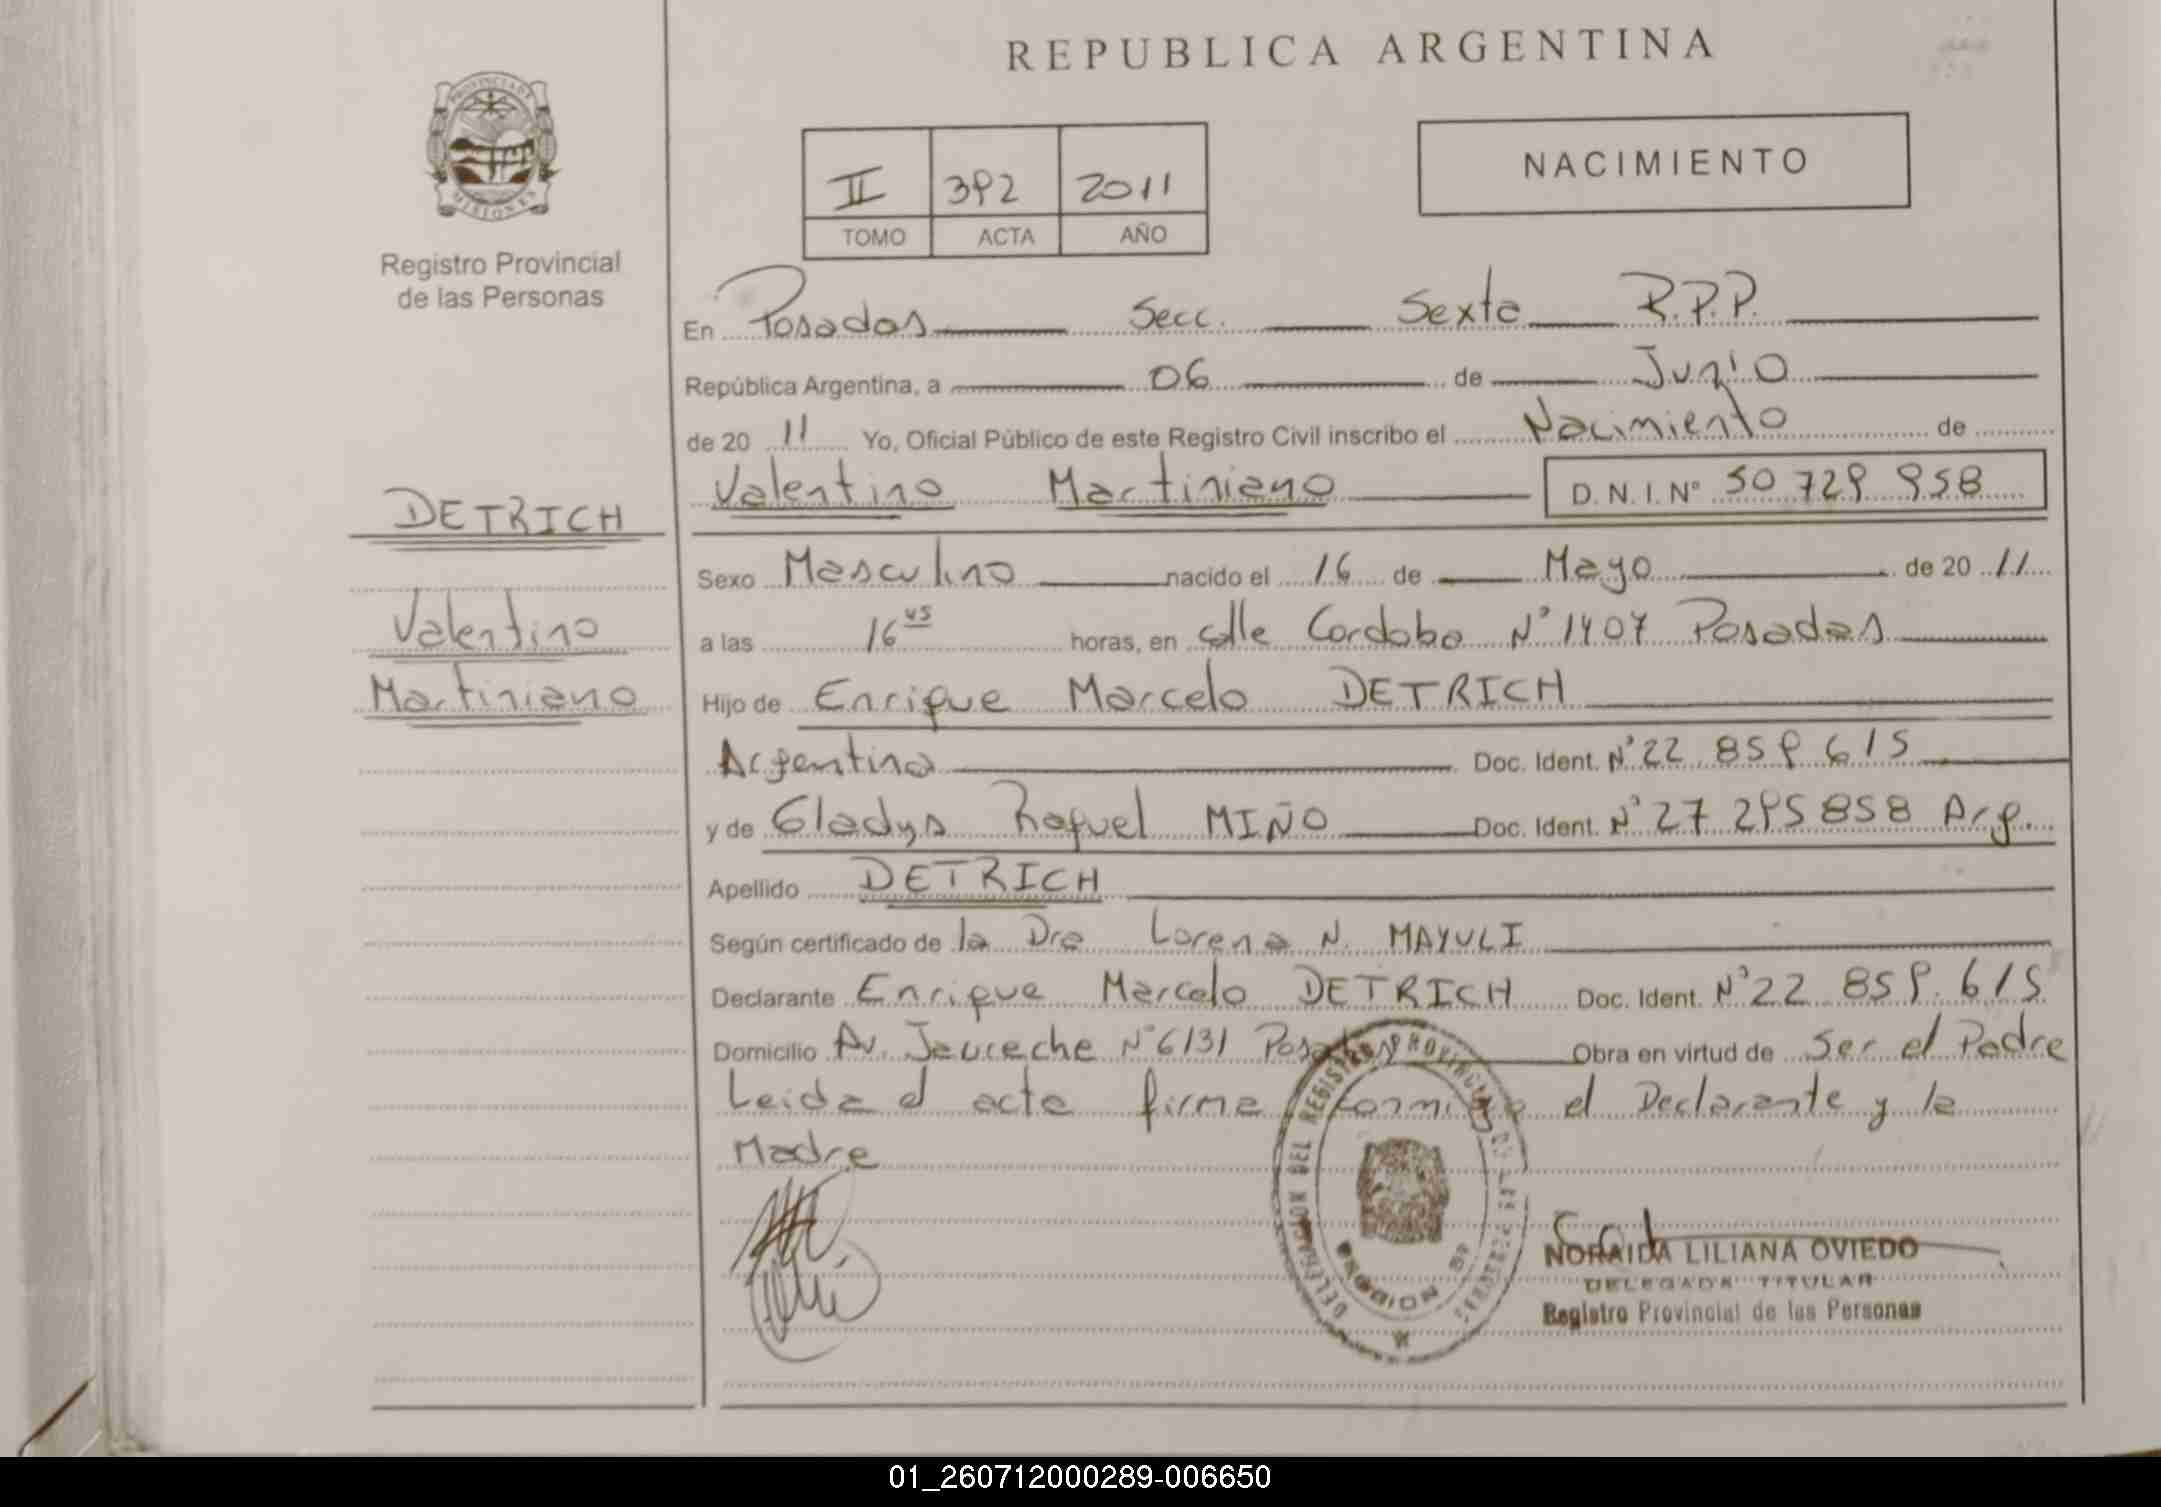 REPUBLICA ARGENTINA
PROVINCIA DE
MISIONES
Registro Provincial
de las Personas
II 392 2011
TOMO ACTA AÑO
NACIMIENTO
En Posadas Secc. Sexta R.P.P.
República Argentina, a 06 de Junio
de 20 11 Yo, Oficial Público de este Registro Civil inscribo el Nacimiento de
Valentino Martiniano D. N. I. N° 50 729 958
DETRICH
Sexo Masculino nacido el 16 de Mayo de 20 11
Valentino
a las 16 45 horas, en calle Cordoba N° 1407 Posadas
Martiniano
Hijo de Enrique Marcelo DETRICH
Argentino Doc. Ident. N° 22 859 615
y de Gladys Raquel MIÑO Doc. Ident. N° 27 295 858 Arg.
Apellido DETRICH
Según certificado de la Dra Lorena N. MAYULI
Declarante Enrique Marcelo DETRICH Doc. Ident. N° 22 859.615
Domicilio Av. Jaureche N° 6131 Posadas Obra en virtud de Ser el Padre
Leida el acta firma conmigo el Declarante y la
Madre
DELEGACION DEL REGISTRO PROVINCIAL DE LAS PERSONAS
NORAIDA LILIANA OVIEDO
DELEGADA TITULAR
Registro Provincial de las Personas
01_260712000289-006650